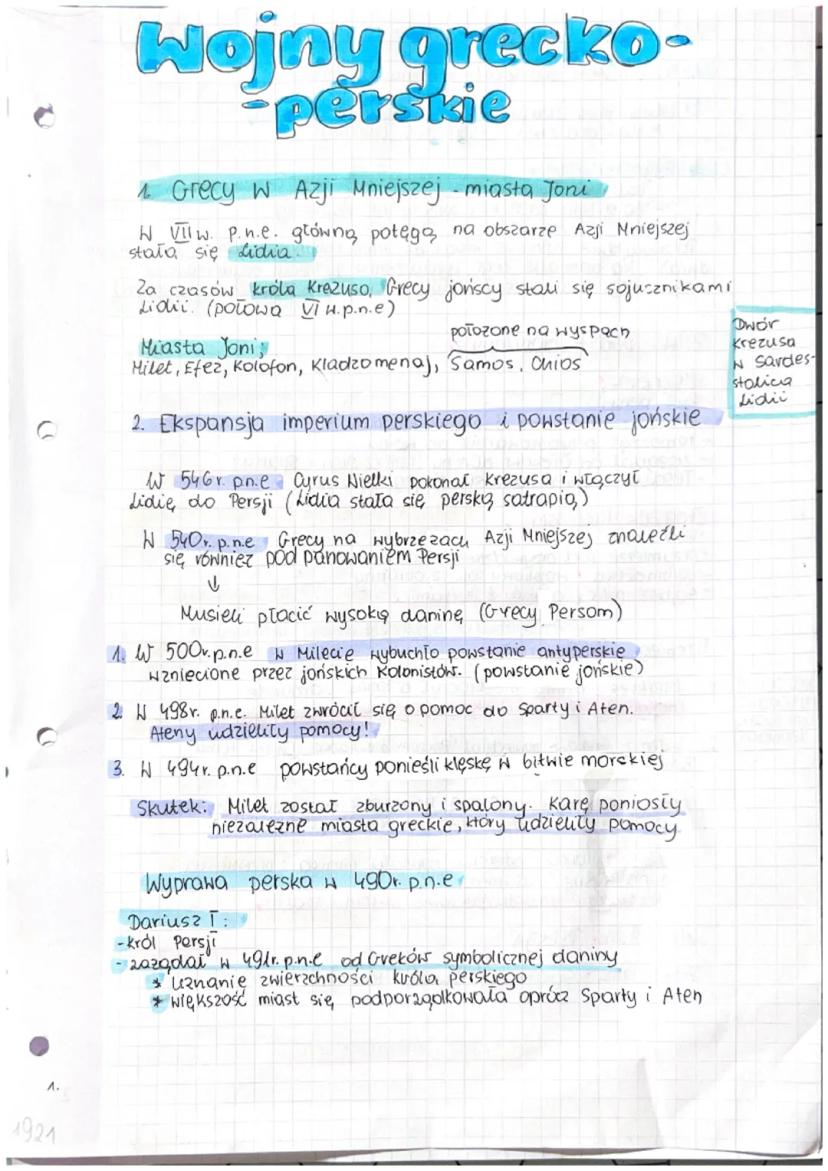 Wojny grecko-
-perskie
1. Grecy w Azji Mniejszej - miasta Joni
W VII w. p.n.e. główną potęgą na obszarze Azji Mniejszej
stała się Lidia.
Za czasów króla Krezusa, Grecy jońscy stali się sojusznikami
Lidii. (połowa VI w.p.n.e)
położone na wyspach
Miasta Joni:
Milet, Efez, Kolofon, Kladzomenaj, Samos, Chios
Dwór
Krezusa
w Sardes-
stalica
Lidii
2. Ekspansja imperium perskiego i powstanie jońskie
W 546r. p.n.e Cyrus Wielki pokonał Krezusa i włączył
Lidię do Persji (Lidia stała się perską satrapią)
W 540r. p.n.e Grecy na wybrzeżach Azji Mniejszej znaleźli
się również pod panowaniem Persji
↓
Musieli płacić wysoką daninę (Grecy Persom)
1. W 500r.p.n.e w Milecie wybuchło powstanie antyperskie
wzniecione przez jońskich kolonistów. (powstanie jońskie)
2. W 498r. p.n.e. Milet zwrócił się o pomoc do Sparty i Aten.
Ateny udzieliły pomocy!
3. W 494r. p.n.e powstańcy ponieśli klęskę w bitwie morskiej
Skutek: Milet został zburzony i spalony. Karę poniosły
niezależne miasta greckie, który udzieliły pomocy
Wyprawa perska w 490r. p.n.e
Dariusz I:
-król Persji
- zażądał w 491r.p.n.e od Greków symbolicznej daniny
* uznanie zwierzchności króla perskiego
* większość miast się podporządkowała oprócz Sparty i Aten
1.
1921